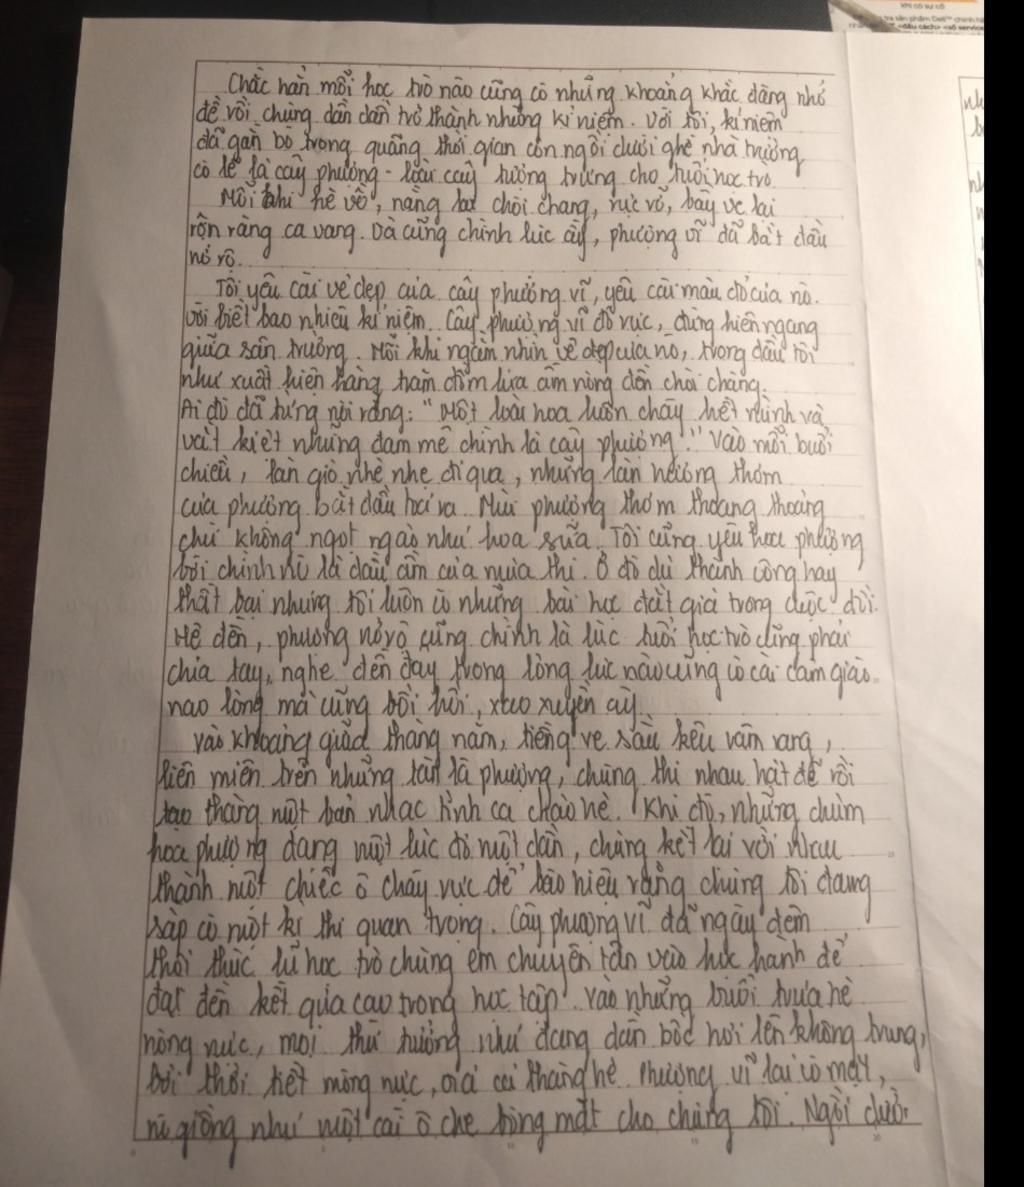 khi có sự cố
tra sản phẩm Dell™ chính h
<dấu cách> <số service
Chắc hẳn mỗi học trò nào cũng có những khoảng khắc đáng nhớ
để rồi chúng dần dần trở thành những kỉ niệm. Với tôi, kỉ niệm
đã gắn bó trong quãng thời gian còn ngồi dưới ghế nhà trường
có lẽ là cây phượng - loài cây tượng trưng cho tuổi học trò
Mỗi khi hè về, nắng lại chói chang, rực rỡ, bầy ve lại
rộn ràng ca vang. Và cũng chính lúc ấy, phượng vĩ đã bắt đầu
nở rộ.
Tôi yêu cái vẻ đẹp của cây phượng vĩ, yêu cái màu đỏ của nó.
với biết bao nhiêu kỉ niệm. Cây phượng vĩ đỏ rực, đứng hiên ngang
giữa sân trường. Mỗi khi ngắm nhìn vẻ đẹp của nó, trong đầu tôi
như xuất hiện hàng trăm đốm lửa ấm nóng đến chói chang.
Ai đó đã từng nói rằng: "Một loài hoa luôn cháy hết mình và
vắt kiệt những đam mê chính là cây phượng." Vào mỗi buổi
chiều, làn gió nhè nhẹ đi qua, những làn hương thơm
của phượng bắt đầu toả ra. Mùi phượng thơm thoang thoảng
chứ không ngọt ngào như hoa sữa. Tôi cũng yêu hoa phượng
bởi chính nó là dấu ấn của mùa thi. Ở đó dù thành công hay
thất bại nhưng tôi luôn có những bài học đắt giá trong cuộc đời.
Hè đến, phượng nở rộ cũng chính là lúc tuổi học trò cũng phải
chia tay, nghe đến đây trong lòng lúc nào cũng có cái cảm giác
nao lòng mà cũng bồi hồi, xao xuyến ấy.
Vào khoảng giữa tháng năm, tiếng ve sầu kêu vang,
liên miên trên những tán lá phượng, chúng thi nhau hát để rồi
tạo thàng một bản nhạc tình ca chào hè. Khi đó, những chùm
hoa phượng đang một lúc đỏ một dần, chúng kết lại với nhau
thành một chiếc ô cháy rực để báo hiệu rằng chúng tôi đang
sắp có một kì thi quan trọng. Cây phượng vĩ đã ngày đêm
thôi thúc lũ học trò chúng em chuyên tân vào học hành để
đạt đến kết quả cao trong học tập. Vào những buổi trưa hè
nóng nực, mọi thứ tưởng như đang dần bốc hơi lên không trung,
bởi thời tiết nóng nực, oi ả của tháng hè. Phượng vĩ lại có mặt,
nó giống như một cái ô che bóng mát cho chúng tôi. Ngồi dưới